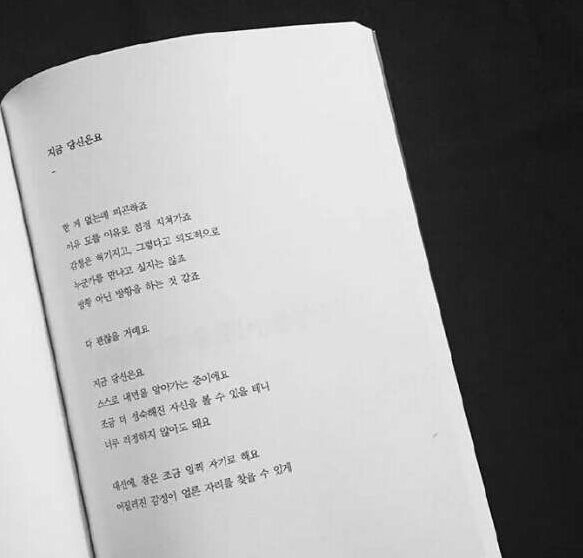 지금 당신은요
-
한 게 없는데 피곤하죠
이유 모를 이유로 점점 지쳐가죠
감통은 허기지고, 그렇다고 의도적으로
누군가를 만나고 싶지는 않죠
방황 아닌 방황을 하는 것 같죠
다 괜찮을 거예요
지금 당신은요
스스로 내면을 알아가는 중이에요
조금 더 성숙해진 자신을 볼 수 있을 테니
너무 걱정하지 않아도 돼요
대신에, 잠은 조금 일찍 자기로 해요
어질러진 감정이 얼른 자리를 찾을 수 있게